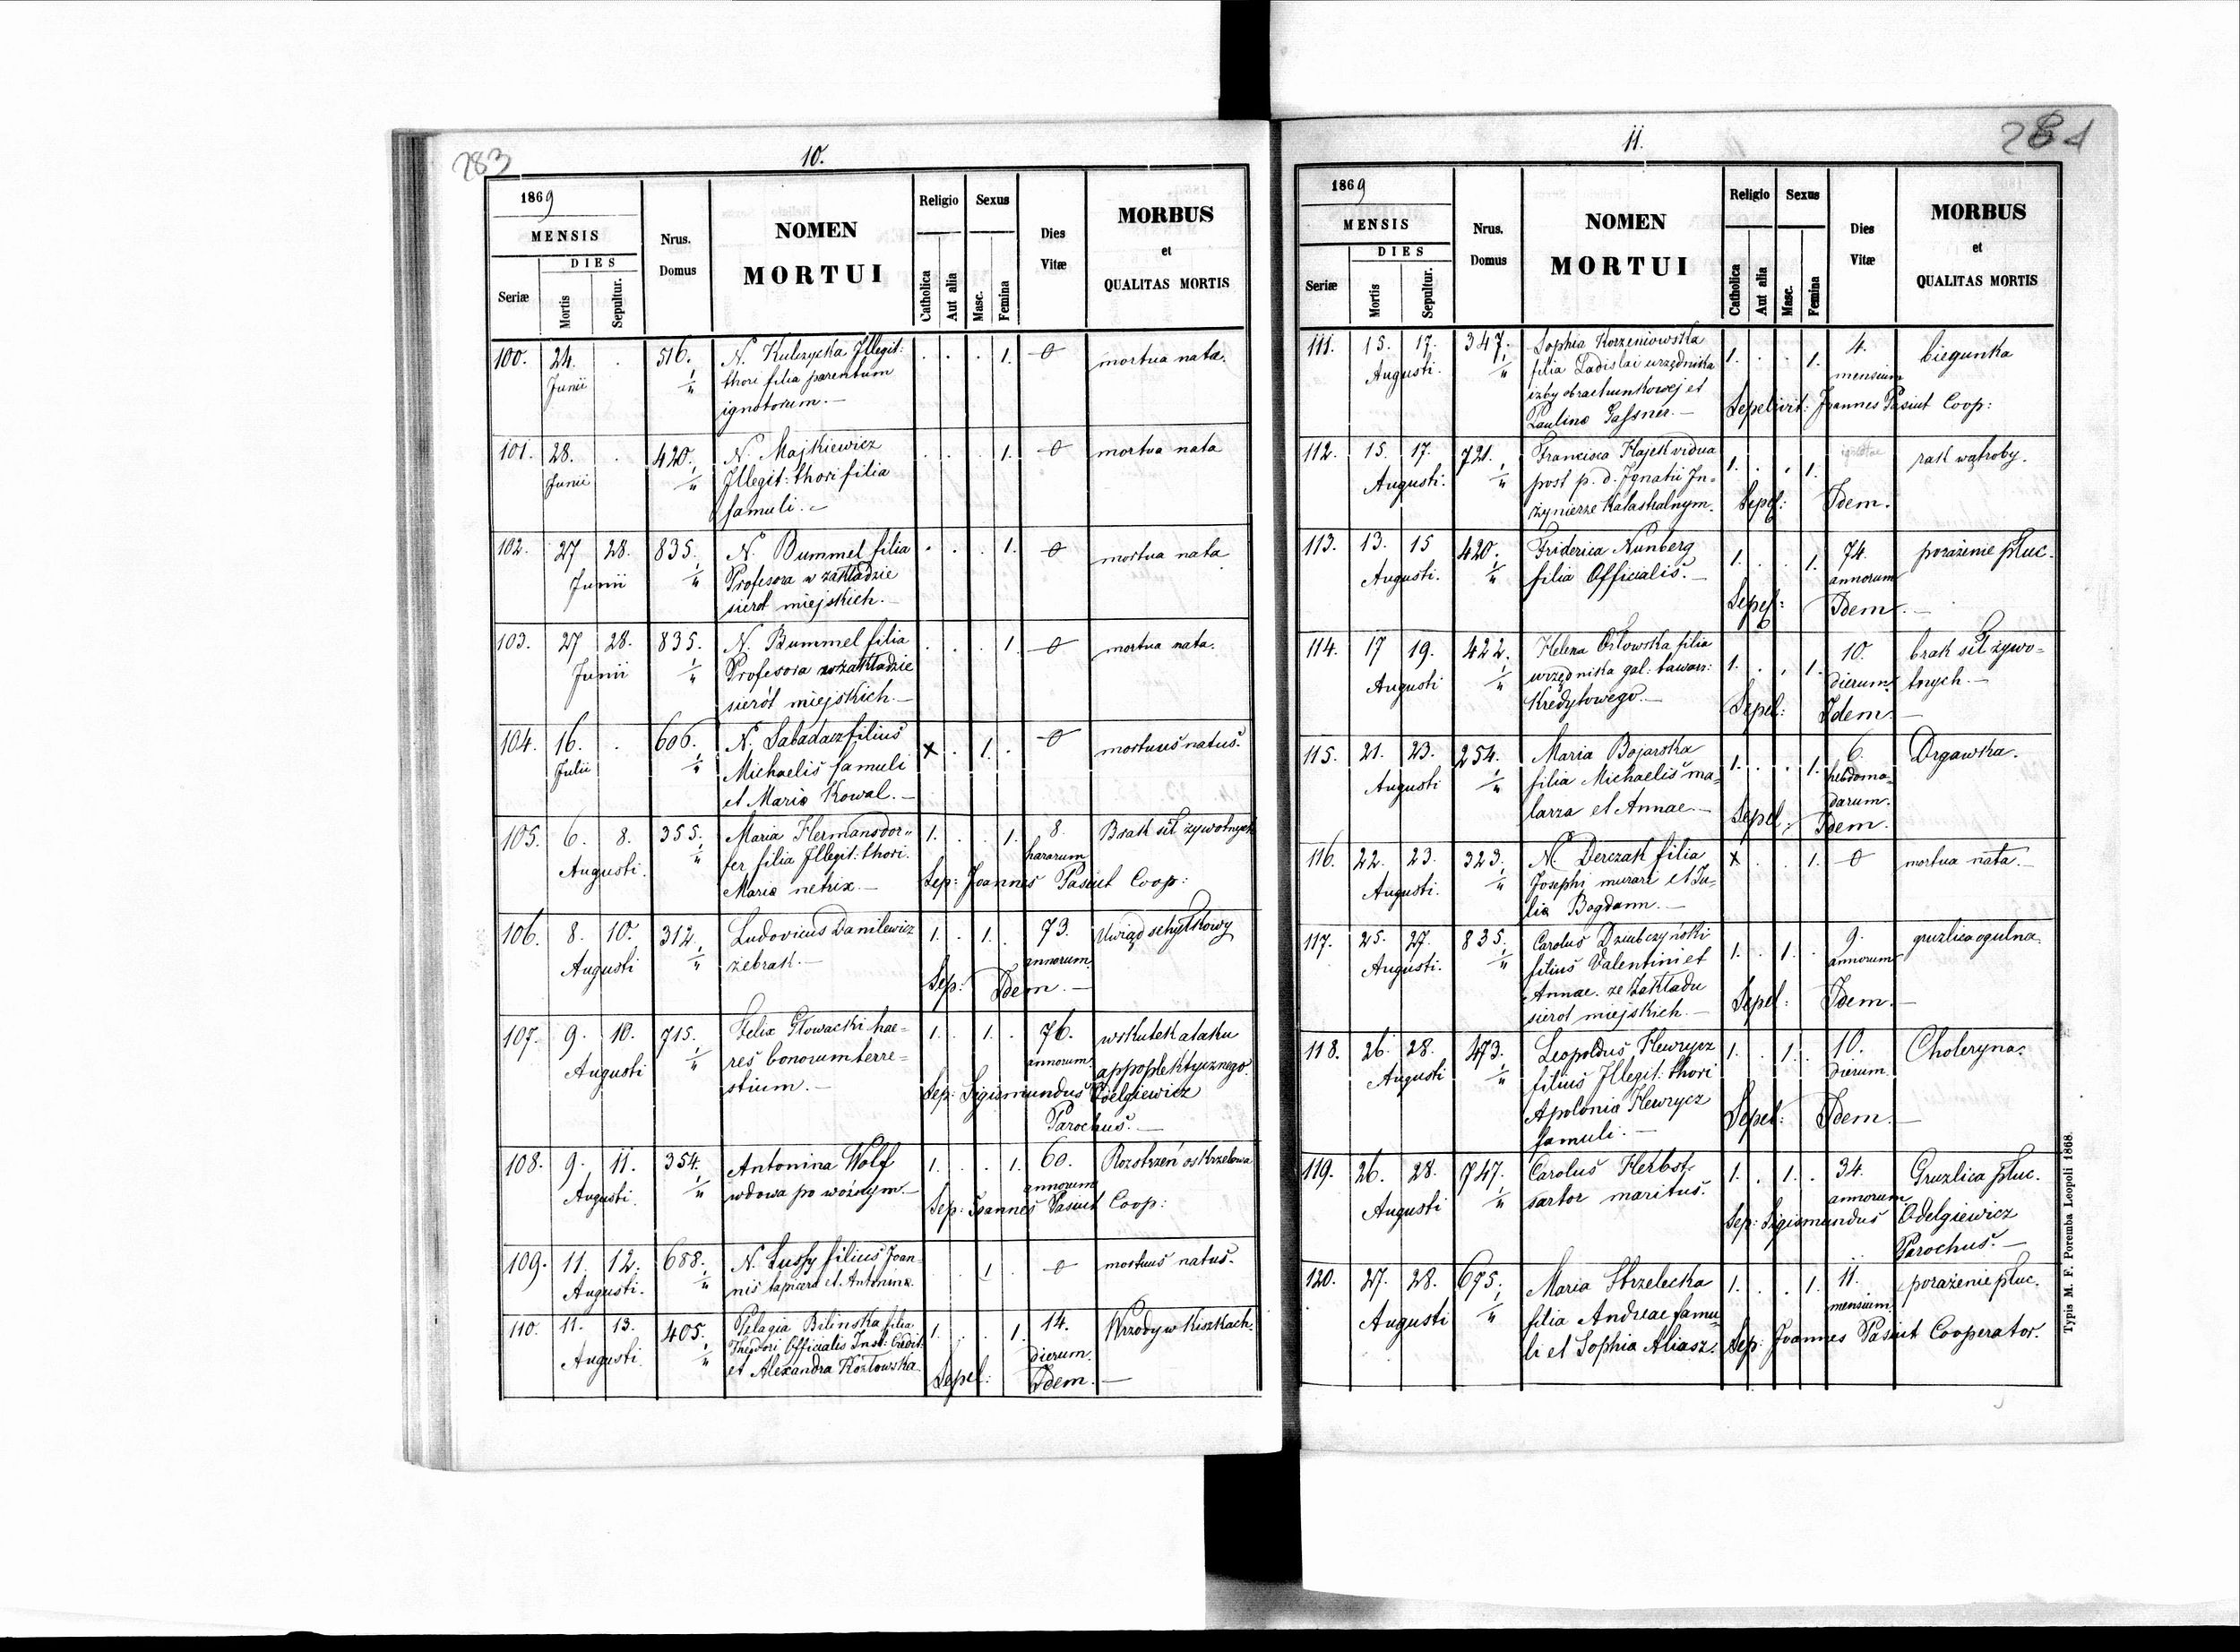 283
10.
1869
MENSIS
DIES
Seriæ
Mortis
Sepultur.
Nrus.
Domus
NOMEN
MORTUI
Religio
Catholica
Aut alia
Sexus
Masc.
Femina
Dies
Vitæ
MORBUS
et
QUALITAS MORTIS
100. 24. 516. N. Kulczycka Illegit: 1. 0 mortua nata.
Junii thori filia parentum
ignotorum.
101. 28. 420. N. Majkiewicz 1. 0 mortua nata
Junii Illegit: thori filia
famuli.
102. 27 28. 835. N. Bummel filia 1. 0 mortua nata
Junii Profesora w zakładzie
sierót miejskich.
103. 27 28. 835. N. Bummel filia 1. 0 mortua nata.
Junii Profesora w zakładzie
sierót miejskich.
104. 16. 606. N. Sabadasz filius x 1. 0 mortuus natus.
Julii Michaelis famuli
et Maria Kowal.
105. 6. 8. 355. Maria Hermansdor= 1. 1. 8. Brak sił żywotnych
Augusti. fer filia Illegit: thori. hararum
Maria netrix. Sep: Joannes Pasiut Coop:
106. 8. 10. 312. Ludovicus Danilewicz 1. 1. 73. Uwiąd schyłkowy
Augusti żebrak. annorum.
Sep: Idem.
107. 9. 10. 715. Felix Głowacki hae= 1. 1. 76. wskutek ataku
Augusti res bonorum terre= annorum. appoplektycznego.
stium. Sep: Sigismundus Odelgiewicz
Parochus.
108. 9. 11. 354. Antonina Wolf 1. 1. 60. Rozstrzeń oskrzelowa
Augusti. wdowa po woźnym. annorum
Sep: Joannes Pasiut Coop:
109. 11. 12. 688. N. Lussy filius Joan= 1. 0 mortuus natus.
Augusti. nis tapicera et Antonina.
110. 11. 13. 405. Pelagia Bilinska filia 1. 1. 14. Wrzody w kiszkach.
Augusti. Theodori Officialis Inst: Credit: dierum.
et Alexandra Kozłowska. Sepel: Idem.
284
11.
1869
MENSIS
DIES
Seriæ
Mortis
Sepultur.
Nrus.
Domus
NOMEN
MORTUI
Religio
Catholica
Aut alia
Sexus
Masc.
Femina
Dies
Vitæ
MORBUS
et
QUALITAS MORTIS
111. 15. 17. 347. Sophia Korzeniowska 1. 1. 4. biegunka
Augusti. filia Ladislai urzędnika mensium
izby obrachunkowej et
Paulina Gassner. Sepelivit: Joannes Pasiut Coop:
112. 15. 17. 721. Francisca Hajek vidua 1. 1. rak wątroby.
Augusti. post p. d. Ignatii In=
żynierze Katastralnym. Sepel: Idem.
113. 13. 15 420. Friderica Nunberg 1. 1. 74. porażenie płuc.
Augusti. filia Officialis. annorum
Sepel: Idem.
114. 17 19. 422. Helena Orłowska filia 1. 1. 10. brak sił żywo=
Augusti urzędnika gal: towarz: dierum. tnych.
Kredytowego. Sepel: Idem.
115. 21. 23. 254. Maria Bojarska 1. 1. 6. Drgawka.
Augusti filia Michaelis ma= hebdoma=
larza et Annae. darum.
Sepel: Idem.
116. 22. 23. 323. N. Derczak filia x 1. 0 mortua nata.
Augusti. Josephi murari et Ju=
lia Bogdann.
117. 25. 27. 835. Carolus Dziubczyński 1. 1. 9. gruzlica ogulna.
Augusti. filius Valentini et annorum
Annae. ze Zakładu
sierot miejskich. Sepel: Idem.
118. 26. 28. 473. Leopoldus Hewrycz 1. 1. 10. Choleryna.
Augusti filius Illegit: thori dierum.
Apolonia Hewrycz
famuli. Sepel: Idem.
119. 26. 28. 747. Carolus Herbst 1. 1. 34. Gruzlica płuc.
Augusti sartor maritus. annorum
Sep: Sigismundus Odelgiewicz
Parochus.
120. 27. 28. 695. Maria Strzelecka 1. 1. 11. porażenie płuc.
Augusti filia Andreae famu= mensium
li et Sophia Aliasz. Sep: Joannes Pasiut Cooperator.
Typis M. F. Poremba Leopoli 1868.